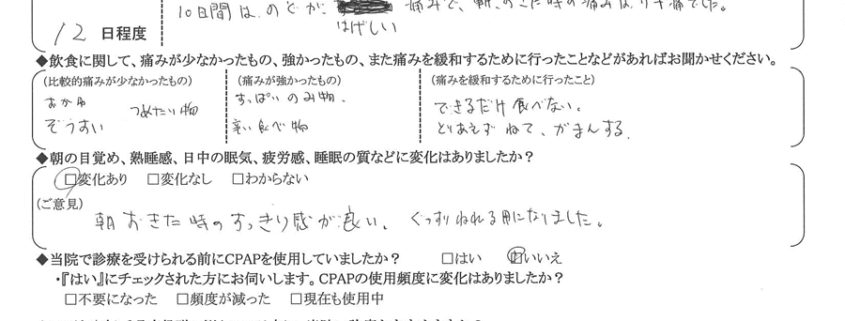 10日間は、のどが、
はげしい
12 日程度
◆飲食に関して、痛みが少なかったもの、強かったもの、また痛みを緩和するために行ったことなどがあればお聞かせください。
(比較的痛みが少なかったもの) (痛みが強かったもの) (痛みを緩和するために行ったこと)
おかゆ つめたい物 すっぱいのみ物、 できるだけ食べない。
ぞうすい 辛い食べ物 とりあえずねて、がまんする。
◆朝の目覚め、熟睡感、日中の眠気、疲労感、睡眠の質などに変化はありましたか？
□変化あり □変化なし □わからない
(ご意見)
朝おきた時のすっきり感が良い、ぐっすりねれる用になりました。
◆当院で診療を受けられる前にCPAPを使用していましたか？ □はい □いいえ
・『はい』にチェックされた方にお伺いします。CPAPの使用頻度に変化はありましたか？
□不要になった □頻度が減った □現在も使用中